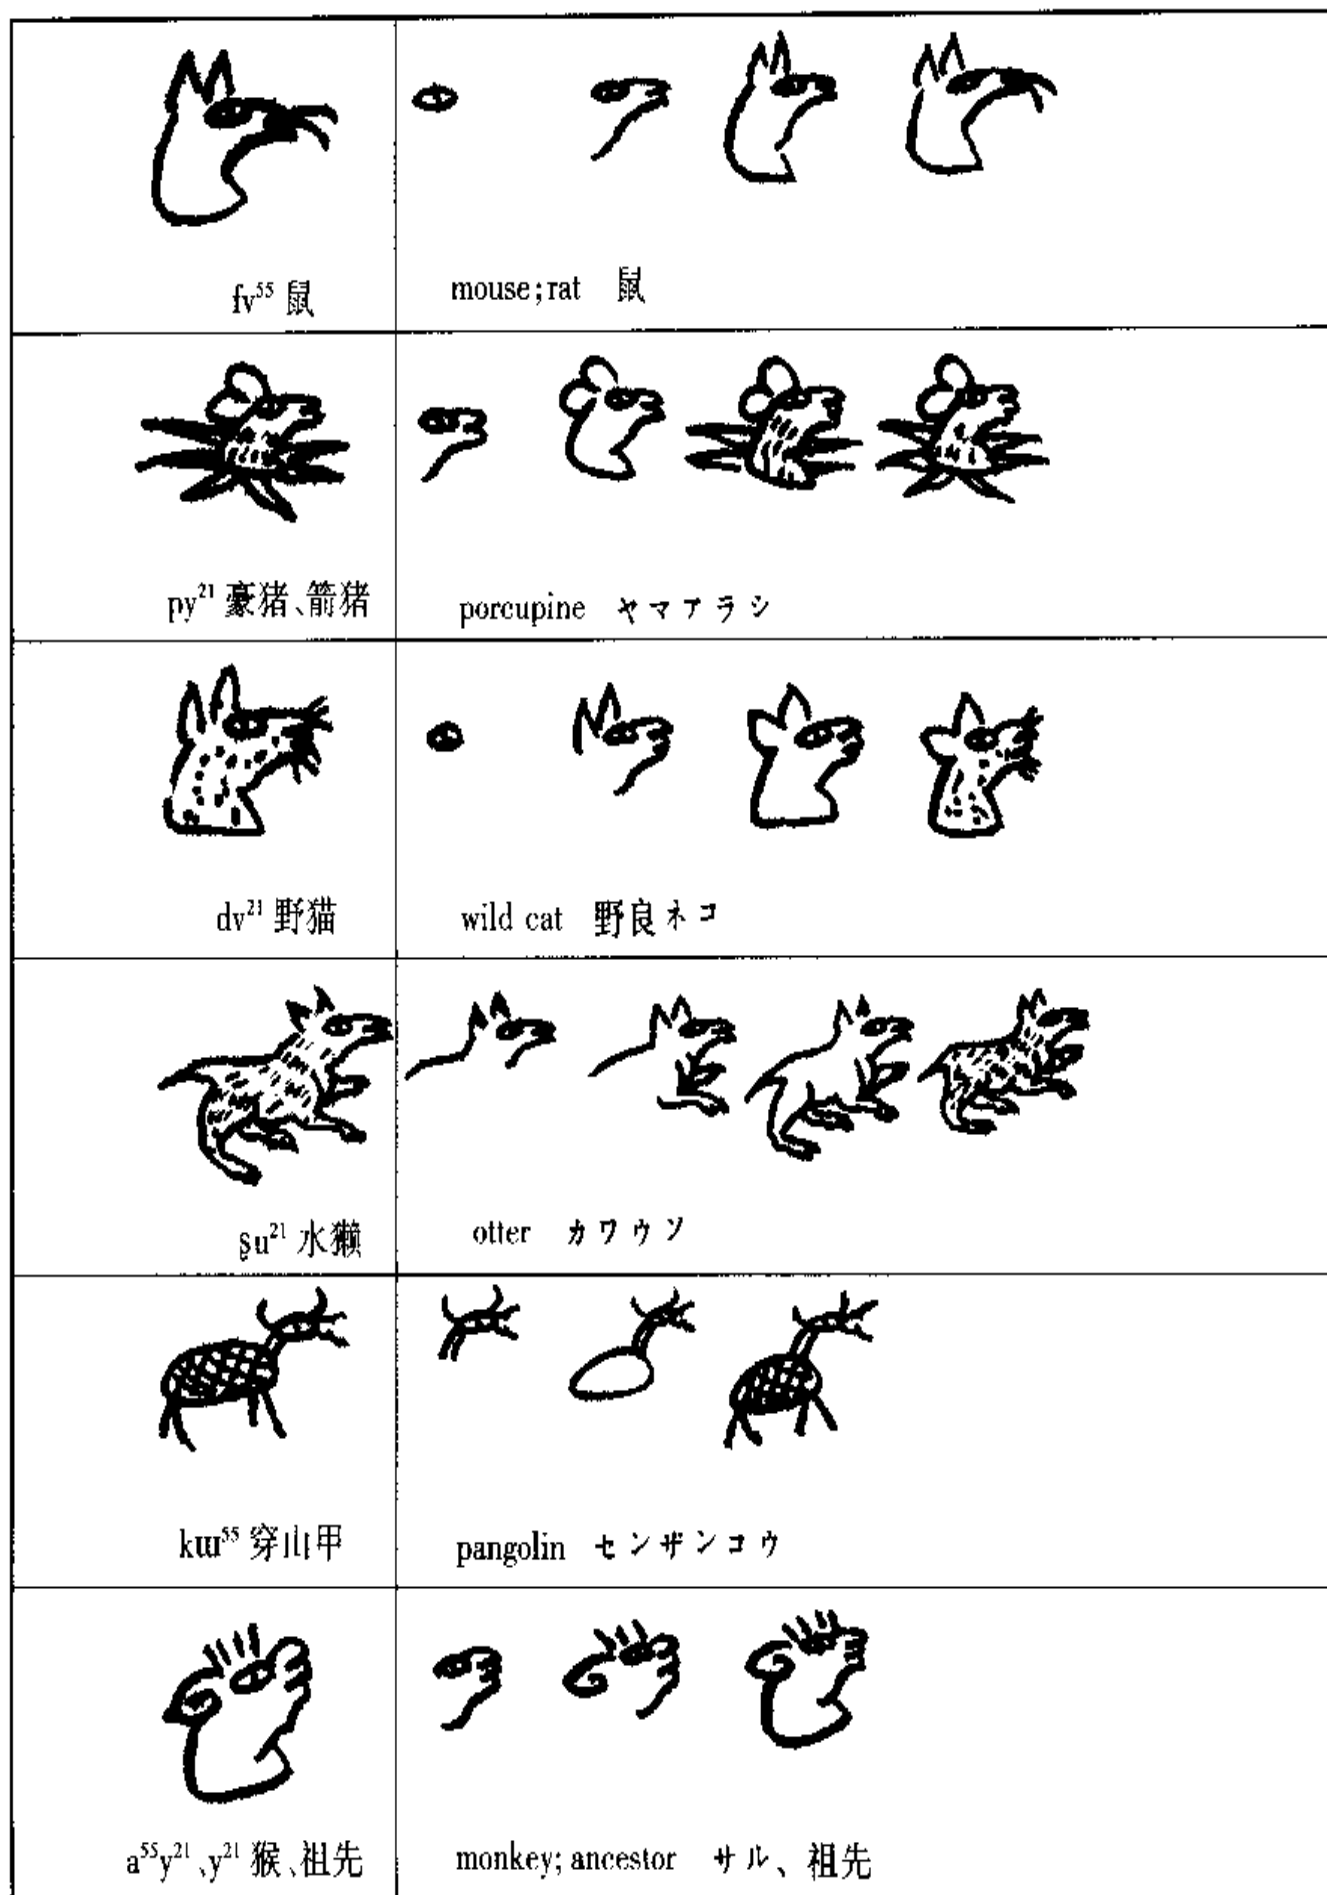 fv⁵⁵ 鼠
mouse;rat 鼠
py²¹ 豪猪、箭猪
porcupine ヤマアラシ
dv²¹ 野猫
wild cat 野良ネコ
ʂu²¹ 水獭
otter カワウソ
kɯ⁵⁵ 穿山甲
pangolin センザンコウ
a⁵⁵y²¹、y²¹ 猴、祖先
monkey; ancestor サル、祖先